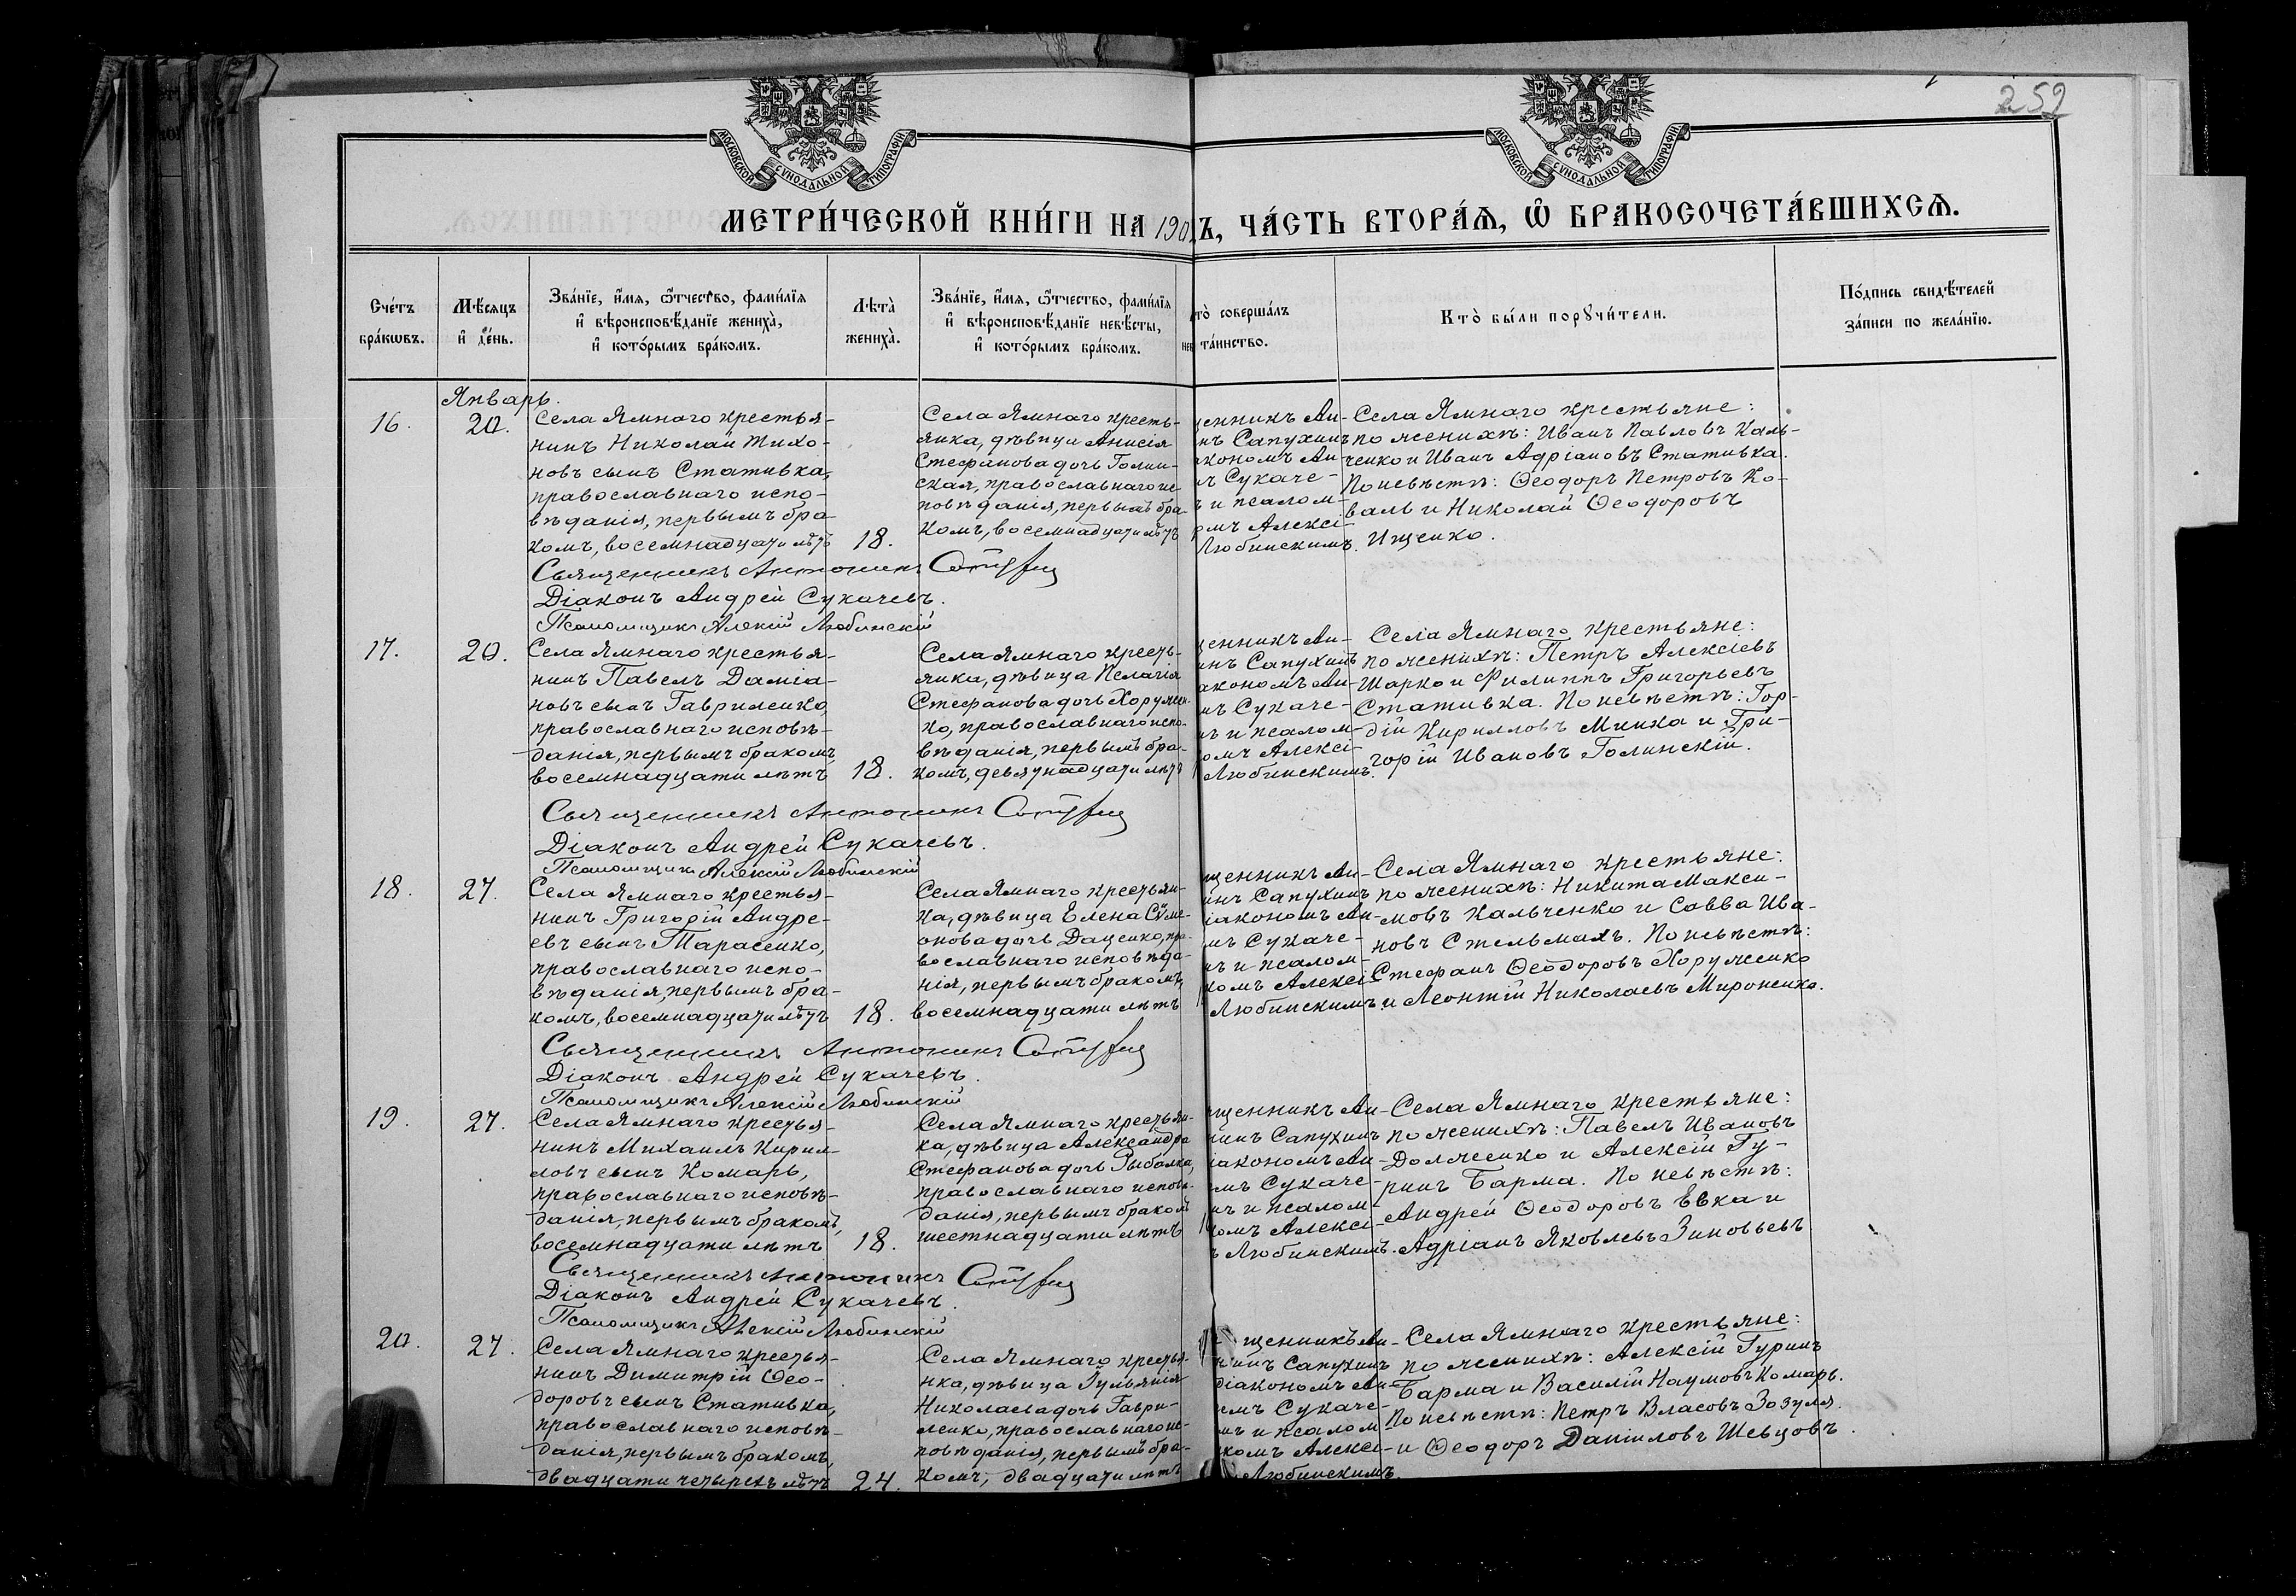 259
МОСКОВСКОЙ СѴНОДАЛЬНОЙ ТИПОГРАФІИ
МОСКОВСКОЙ СѴНОДАЛЬНОЙ ТИПОГРАФІИ
МЕТРИ́ЧЕСКОЙ КНИ́ГИ НА 190 Ъ, ЧА́СТЬ ВТОРА́Ѧ, Ѡ БРАКОСОЧЕТА́ВШИХСѦ.
Сче́тъ бра́кѡвъ.
Мѣ́сѧцъ и҆ де́нь.
Зва́нїе, и҆́мѧ, ѻ҆́тчество, фами́лїѧ и҆ вѣроисповѣ́данїе жениха̀, и҆ кото́рымъ бра́комъ.
Лѣ́та̀ жениха̀.
Зва́нїе, и҆́мѧ, ѻ҆́тчество, фами́лїѧ и҆ вѣроисповѣ́данїе невѣ́сты, и҆ кото́рымъ бра́комъ.
нев
то̀ соверша́лъ та́инство.
Кто̀ бы́ли порꙋчи́тели.
По́дпись свидѣ́телей за́писи по жела́нїю.
Январь.
16.
20.
Села Ямнаго крестья-
нинъ Николай Тихо-
новъ сынъ Стативка,
православнаго испо-
вѣданія, первымъ бра-
комъ, восемнадцати лѣтъ
18.
Села Ямнаго кресть-
янка, дѣвица Анисія
Стефанова дочь Голин-
ская, православнаго ис-
повѣданія, первымъ бра-
комъ, восемнадцати лѣтъ
щенникъ Ан-
нъ Сапухинъ
акономъ Ан-
мъ Сукаче-
ъ и псалом-
омъ Алексі-
Любинскимъ.
Села Ямнаго крестьяне:
по женихѣ: Иванъ Павловъ Каль-
ченко и Иванъ Адріановъ Стативка.
По невѣстѣ: Ѳеодоръ Петровъ Ко-
валь и Николай Ѳеодоровъ
Ищенко.
Священникъ Антонинъ
Діаконъ Андрей Сукачевъ.
Псаломщикъ Алексій Любинскій
17.
20.
Села Ямнаго крестья-
нинъ Павелъ Даміа-
новъ сынъ Гавриленко,
православнаго исповѣ-
данія, первымъ бракомъ,
восемнадцати лѣтъ
18.
Села Ямнаго кресть-
янка, дѣвица Пелагія
Стефанова дочь Хоружен-
ко, православнаго испо-
вѣданія, первымъ бра-
комъ, девятнадцати лѣтъ
щенникъ Ан-
инъ Сапухинъ
акономъ Ан-
мъ Сукаче-
ъ и псалом-
омъ Алексі-
Любинскимъ.
Села Ямнаго крестьяне:
по женихѣ: Петръ Алексіевъ
Шарко и Филиппъ Григорьевъ
Стативка. По невѣстѣ: Гор-
дій Кирилловъ Минка и Гри-
горій Ивановъ Голинскій.
Священникъ Антонинъ
Діаконъ Андрей Сукачевъ.
Псаломщикъ Алексій Любинскій
18.
27.
Села Ямнаго крестья-
нинъ Григорій Андре-
евъ сынъ Тарасенко,
православнаго испо-
вѣданія, первымъ бра-
комъ, восемнадцати лѣтъ
18.
Села Ямнаго крестьян-
ка, дѣвица Елена Сѵме-
онова дочь Даценко, пра-
вославнаго исповѣда-
нія, первымъ бракомъ,
восемнадцати лѣтъ
щенникъ Ан-
инъ Сапухинъ
іакономъ Ан-
мъ Сукаче-
ъ и псалом-
комъ Алексі-
Любинскимъ.
Села Ямнаго крестьяне:
по женихѣ: Никита Макси-
мовъ Кальченко и Савва Ива-
новъ Стельмахъ. По невѣстѣ:
Стефанъ Ѳеодоровъ Хоруженко
и Леонтій Николаевъ Мироненко.
Священникъ Антонинъ
Діаконъ Андрей Сукачевъ.
Псаломщикъ Алексій Любинскій
19.
27.
Села Ямнаго крестья-
нинъ Михаилъ Кирил-
ловъ сынъ Комарь,
православнаго исповѣ-
данія, первымъ бракомъ,
восемнадцати лѣтъ
18.
Села Ямнаго крестьян-
ка, дѣвица Александра
Стефанова дочь Рыбалка,
православнаго исповѣ-
данія, первымъ бракомъ
шестнадцати лѣтъ
щенникъ Ан-
нинъ Сапухинъ
іакономъ Ан-
емъ Сукаче-
ъ и псалом-
комъ Алексі-
ъ Любинскимъ.
Села Ямнаго крестьяне:
по женихѣ: Павелъ Ивановъ
Долженко и Алексій Гу-
ринъ Барма. По невѣстѣ:
Андрей Ѳеодоровъ Евка и
Адріанъ Яковлевъ Зиновьевъ
Священникъ Антонинъ
Діаконъ Андрей Сукачевъ.
Псаломщикъ Алексій Любинскій
20.
27.
Села Ямнаго крестья-
нинъ Димитрій Ѳео-
доровъ сынъ Стативка,
православнаго исповѣ-
данія, первымъ бракомъ,
двадцати четырехъ лѣтъ
24.
Села Ямнаго крестья-
нка, дѣвица Іульянія
Николаева дочь Гаври-
ленко, православнаго ис-
повѣданія, первымъ бра-
комъ, двадцати лѣтъ
щенникъ Ан-
нинъ Сапухинъ
діакономъ Ан-
емъ Сукаче-
ъ и псалом-
комъ Алексі-
Любинскимъ.
Села Ямнаго крестьяне:
по женихѣ: Алексій Гуринъ
Барма и Василій Наумовъ Комарь.
По невѣстѣ: Петръ Власовъ Зозуля
и Ѳеодоръ Даніиловъ Шевцовъ.